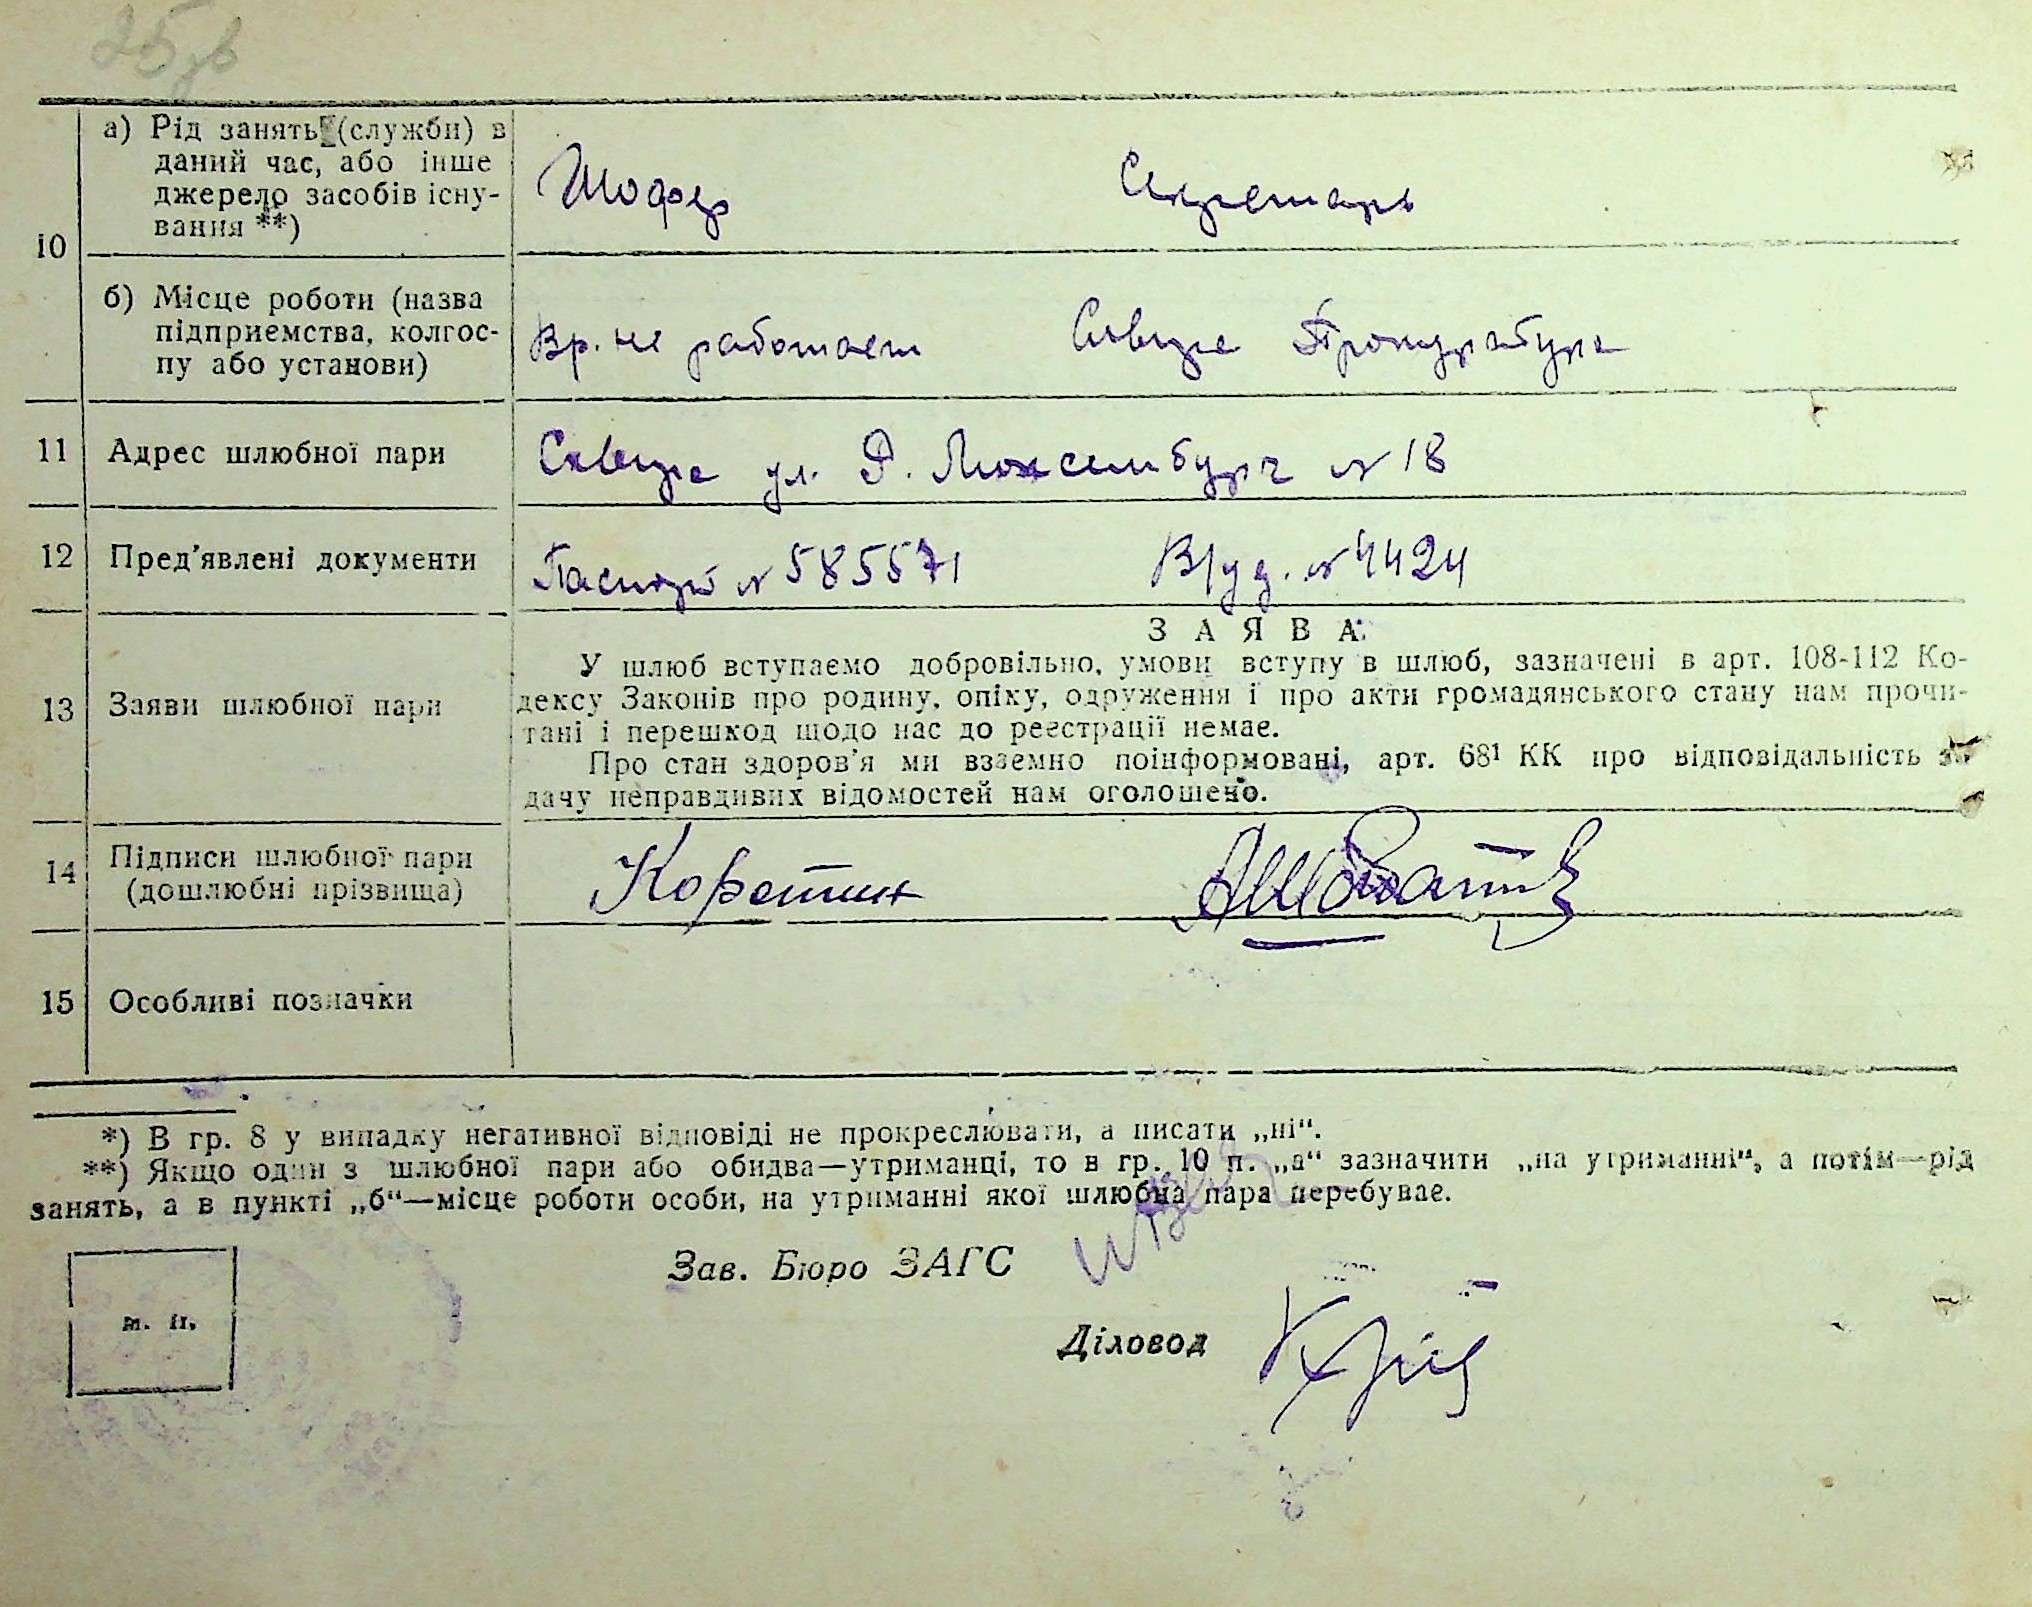 а) Рід занять (служби) в
даний час, або інше
джерело засобів існу-
вання **)
Шофер Секретарь
10
б) Місце роботи (назва
підприємства, колгос-
пу або установи)
Вр. не работает Сквира Прокуратура
11 Адрес шлюбної пари Сквира ул. Р. Люксембург № 18
12 Пред'явлені документи Паспорт № 585571 В/уд. № 4424
ЗАЯВА.
13 Заяви шлюбної пари
У шлюб вступаємо добровільно, умови вступу в шлюб, зазначені в арт. 108-112 Ко-
дексу Законів про родину, опіку, одруження і про акти громадянського стану нам прочи-
тані і перешкод щодо нас до реєстрації немає.
Про стан здоров'я ми взаємно поінформовані, арт. 68¹ КК про відповідальність за
дачу неправдивих відомостей нам оголошено.
14 Підписи шлюбної пари
(дошлюбні прізвища)
15 Особливі позначки
*) В гр. 8 у випадку негативної відповіді не прокреслювати, а писати „ні“.
**) Якщо один з шлюбної пари або обидва—утриманці, то в гр. 10 п. „а“ зазначити „на утриманні“, а потім—рід
занять, а в пункті „б“—місце роботи особи, на утриманні якої шлюбна пара перебуває.
Зав. Бюро ЗАГС
м. п.
Діловод